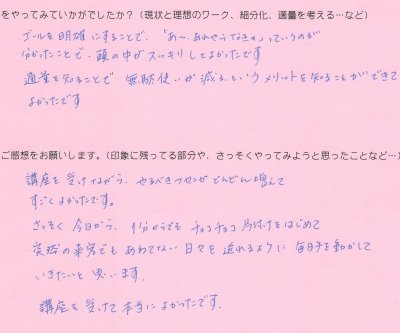 をやってみていかがでしたか？（現状と理想のワーク、細分化、適量を考える…など）
ゴールを明確にすることで、「あ〜、あれやらなきゃ」っていうのが
分かったことで、頭の中がスッキリしてよかったです
適量を知ることで 無駄使いが減る、というメリットを知ることができて
よかったです
ご感想をお願いします。（印象に残ってる部分や、さっそくやってみようと思ったことなど…）
講座を受けながら、やるべき がどんどん増えて
すごくよかったです。
さっそく 今日から、1分からでも チョコチョコ 片付けをはじめて
突然の来客でも あわてない 日々を 送れるように 毎日手を動かして
いきたいと 思います。
講座を受けて 本当に よかったです。